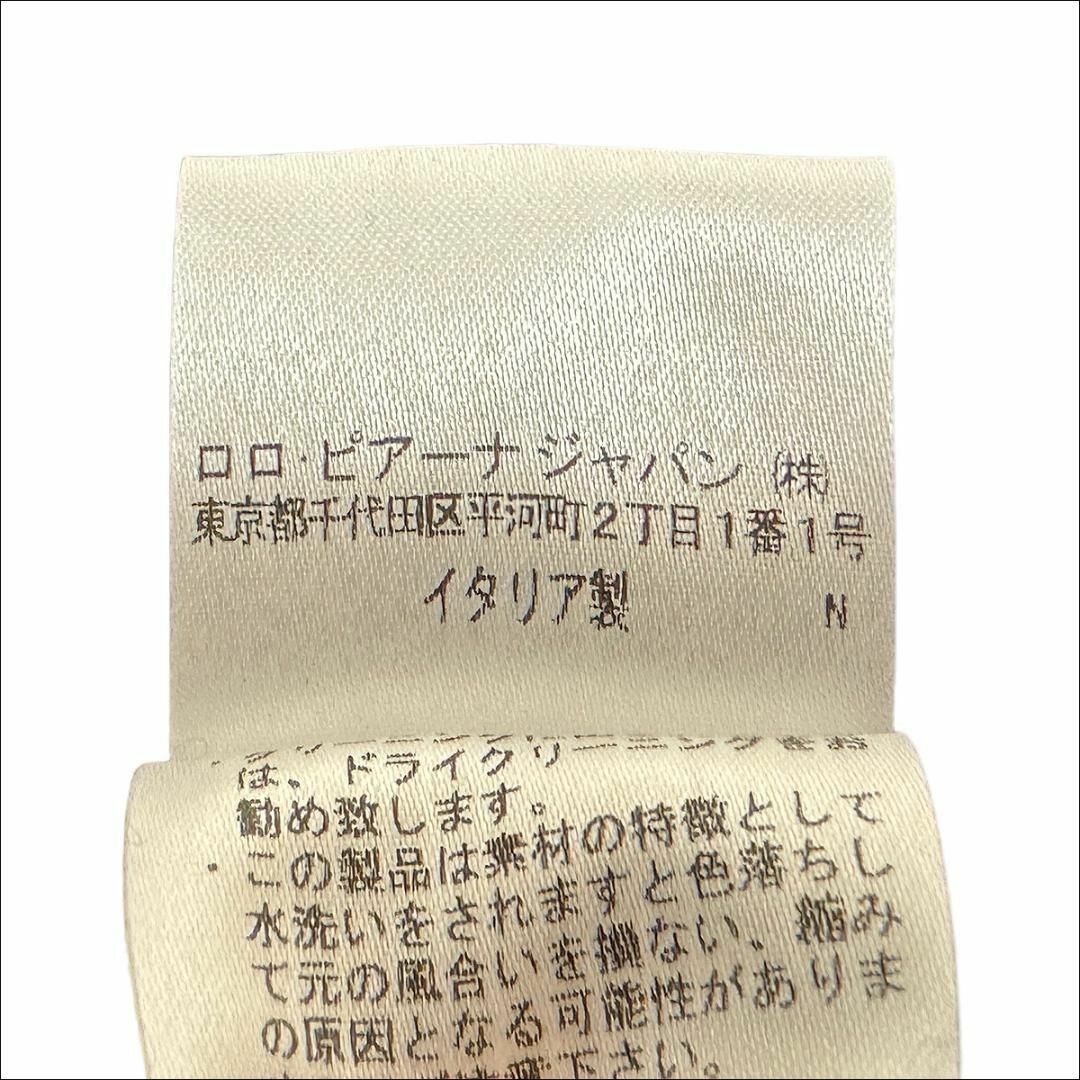 ロロ・ピアーナ ジャパン (株)
東京都千代田区平河町2丁目1番1号
イタリア製 N
は、ドライクリーニングをお
勧め致します。
・この製品は素材の特徴として
水洗いをされますと色落ちし
て元の風合いを損ない、縮み
の原因となる可能性がありま
下さい。